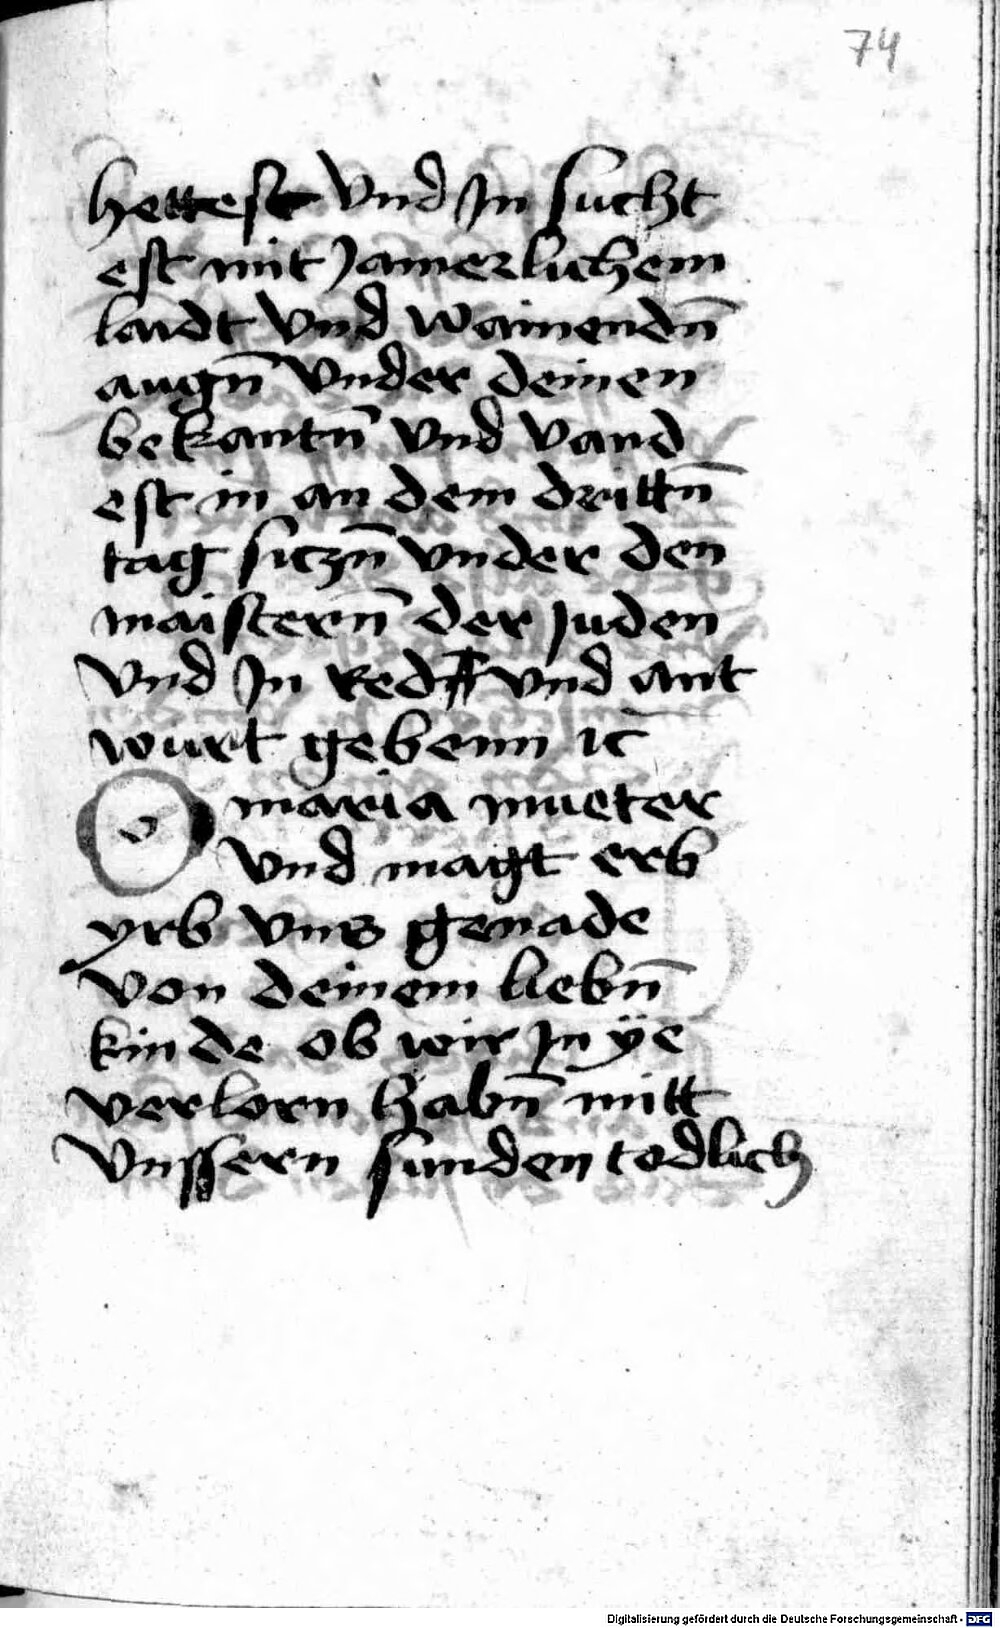 74
hettest vnd In sucht
est mit Jamerlichem
laidt vnd wainendn̄
augn̄ vnder deinen
bekantn̄ vnd vand
est in an dem drittn̄
tag siczn̄ vnder den
maistern̄ der Juden
vnd In red vnd ant
wurt gebenn ꝛc
O maria mueter
vnd magt erb
yrb vns genade
von deinem liebn̄
kinde ob wir In ÿe
verlorn habn̄ mitt
vnssern sunden todlich
Digitalisierung gefördert durch die Deutsche Forschungsgemeinschaft - DFG